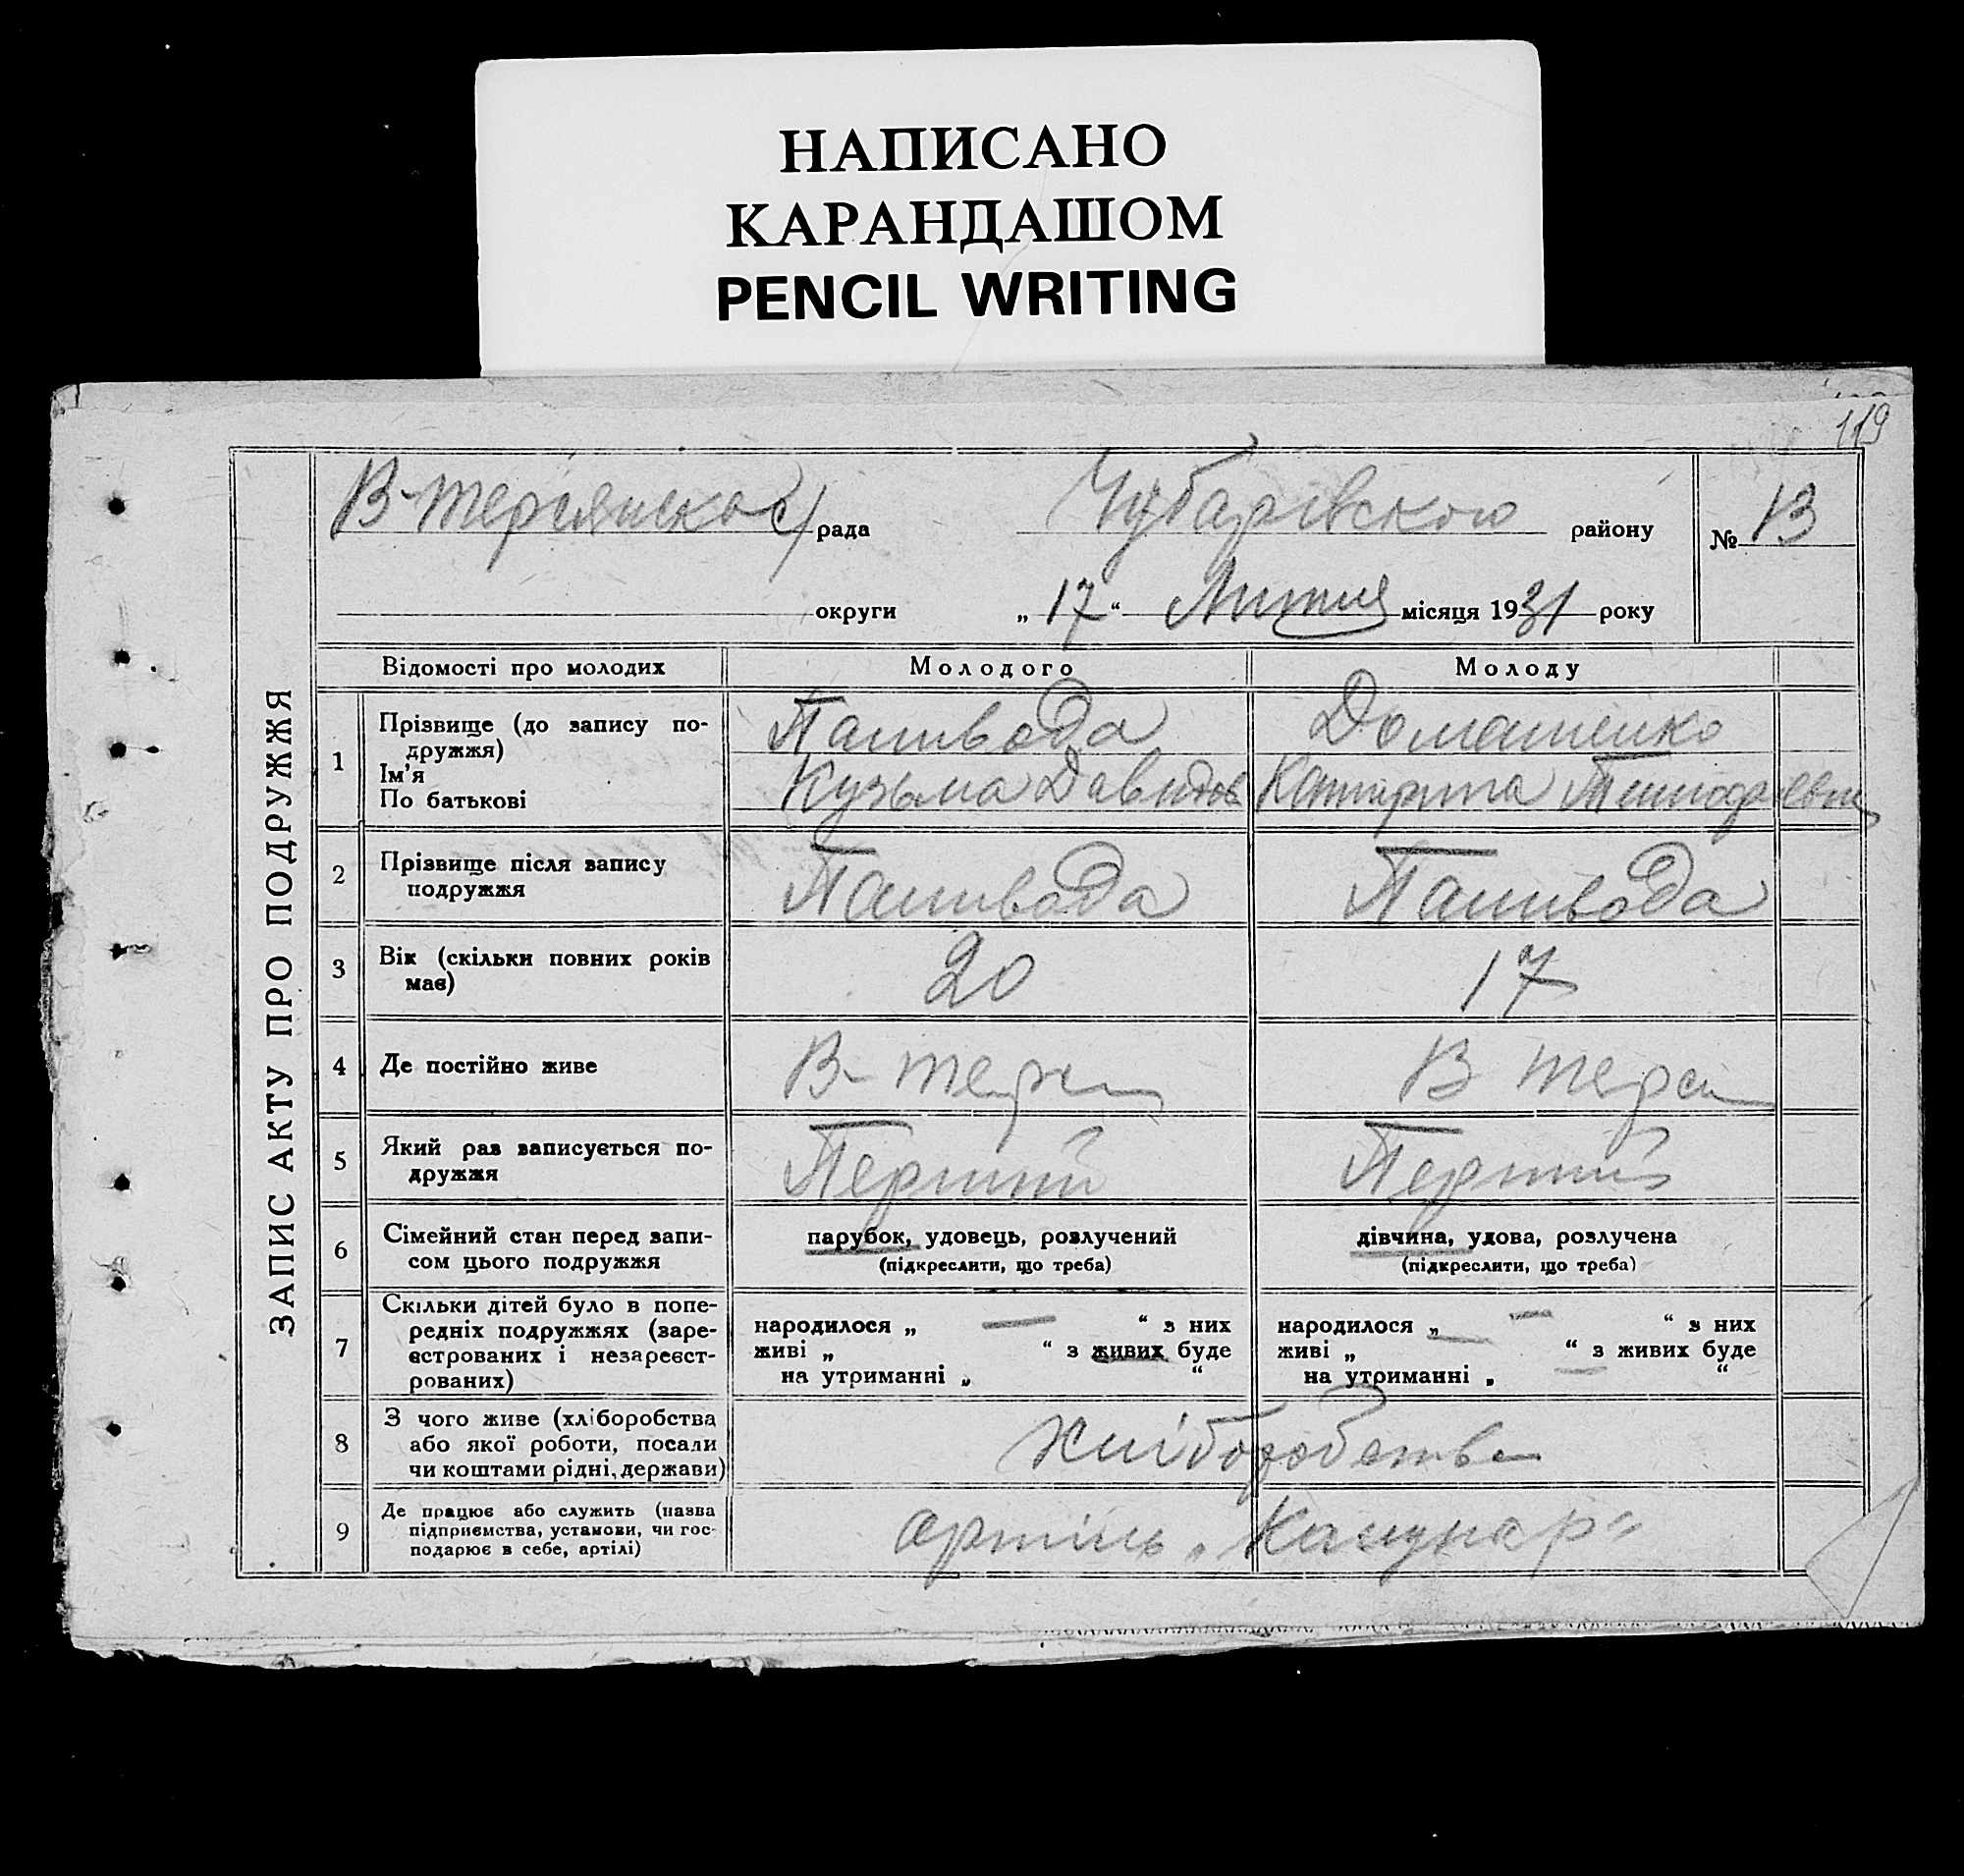 НАПИСАНО
КАРАНДАШОМ
PENCIL WRITING
119
ЗАПИС АКТУ ПРО ПОДРУЖЖЯ
В-Терсянской с/рада Чубарівського району № 13
округи „17“ Липня місяця 1931 року
Відомості про молодих Молодого Молоду
1 Прізвище (до запису по-
дружжя)
Ім'я
По батькові
Паливода Доманенко
Кузьма Давидов Катирина
2 Прізвище після запису
подружжя
Паливода Паливода
3 Вік (скільки повних років
має)
20 17
4 Де постійно живе В-Терса В Терса
5 Який раз записується по-
дружжя
Перший Перший
6 Сімейний стан перед запи-
сом цього подружжя
парубок, удовець, розлучений
(підкреслити, що треба)
дівчина, удова, розлучена
(підкреслити, що треба)
7 Скільки дітей було в попе-
редніх подружжях (заре-
єстрованих і незареєст-
рованих)
народилося „ — “ з них
живі „ “ з живих буде
на утриманні „ “
народилося „ — “ з них
живі „ — “ з живих буде
на утриманні „ — “
8 З чого живе (хліборобства
або якої роботи, посади
чи коштами рідні, держави)
Хліборобства
9 Де працює або служить (назва
підприємства, установи, чи гос-
подарює в себе, артілі)
артіль „Комунар“